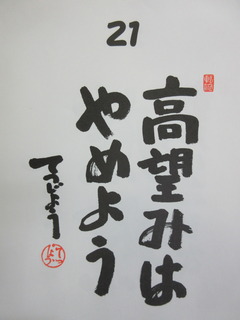 21
高望みは
やめよう
てつじょう